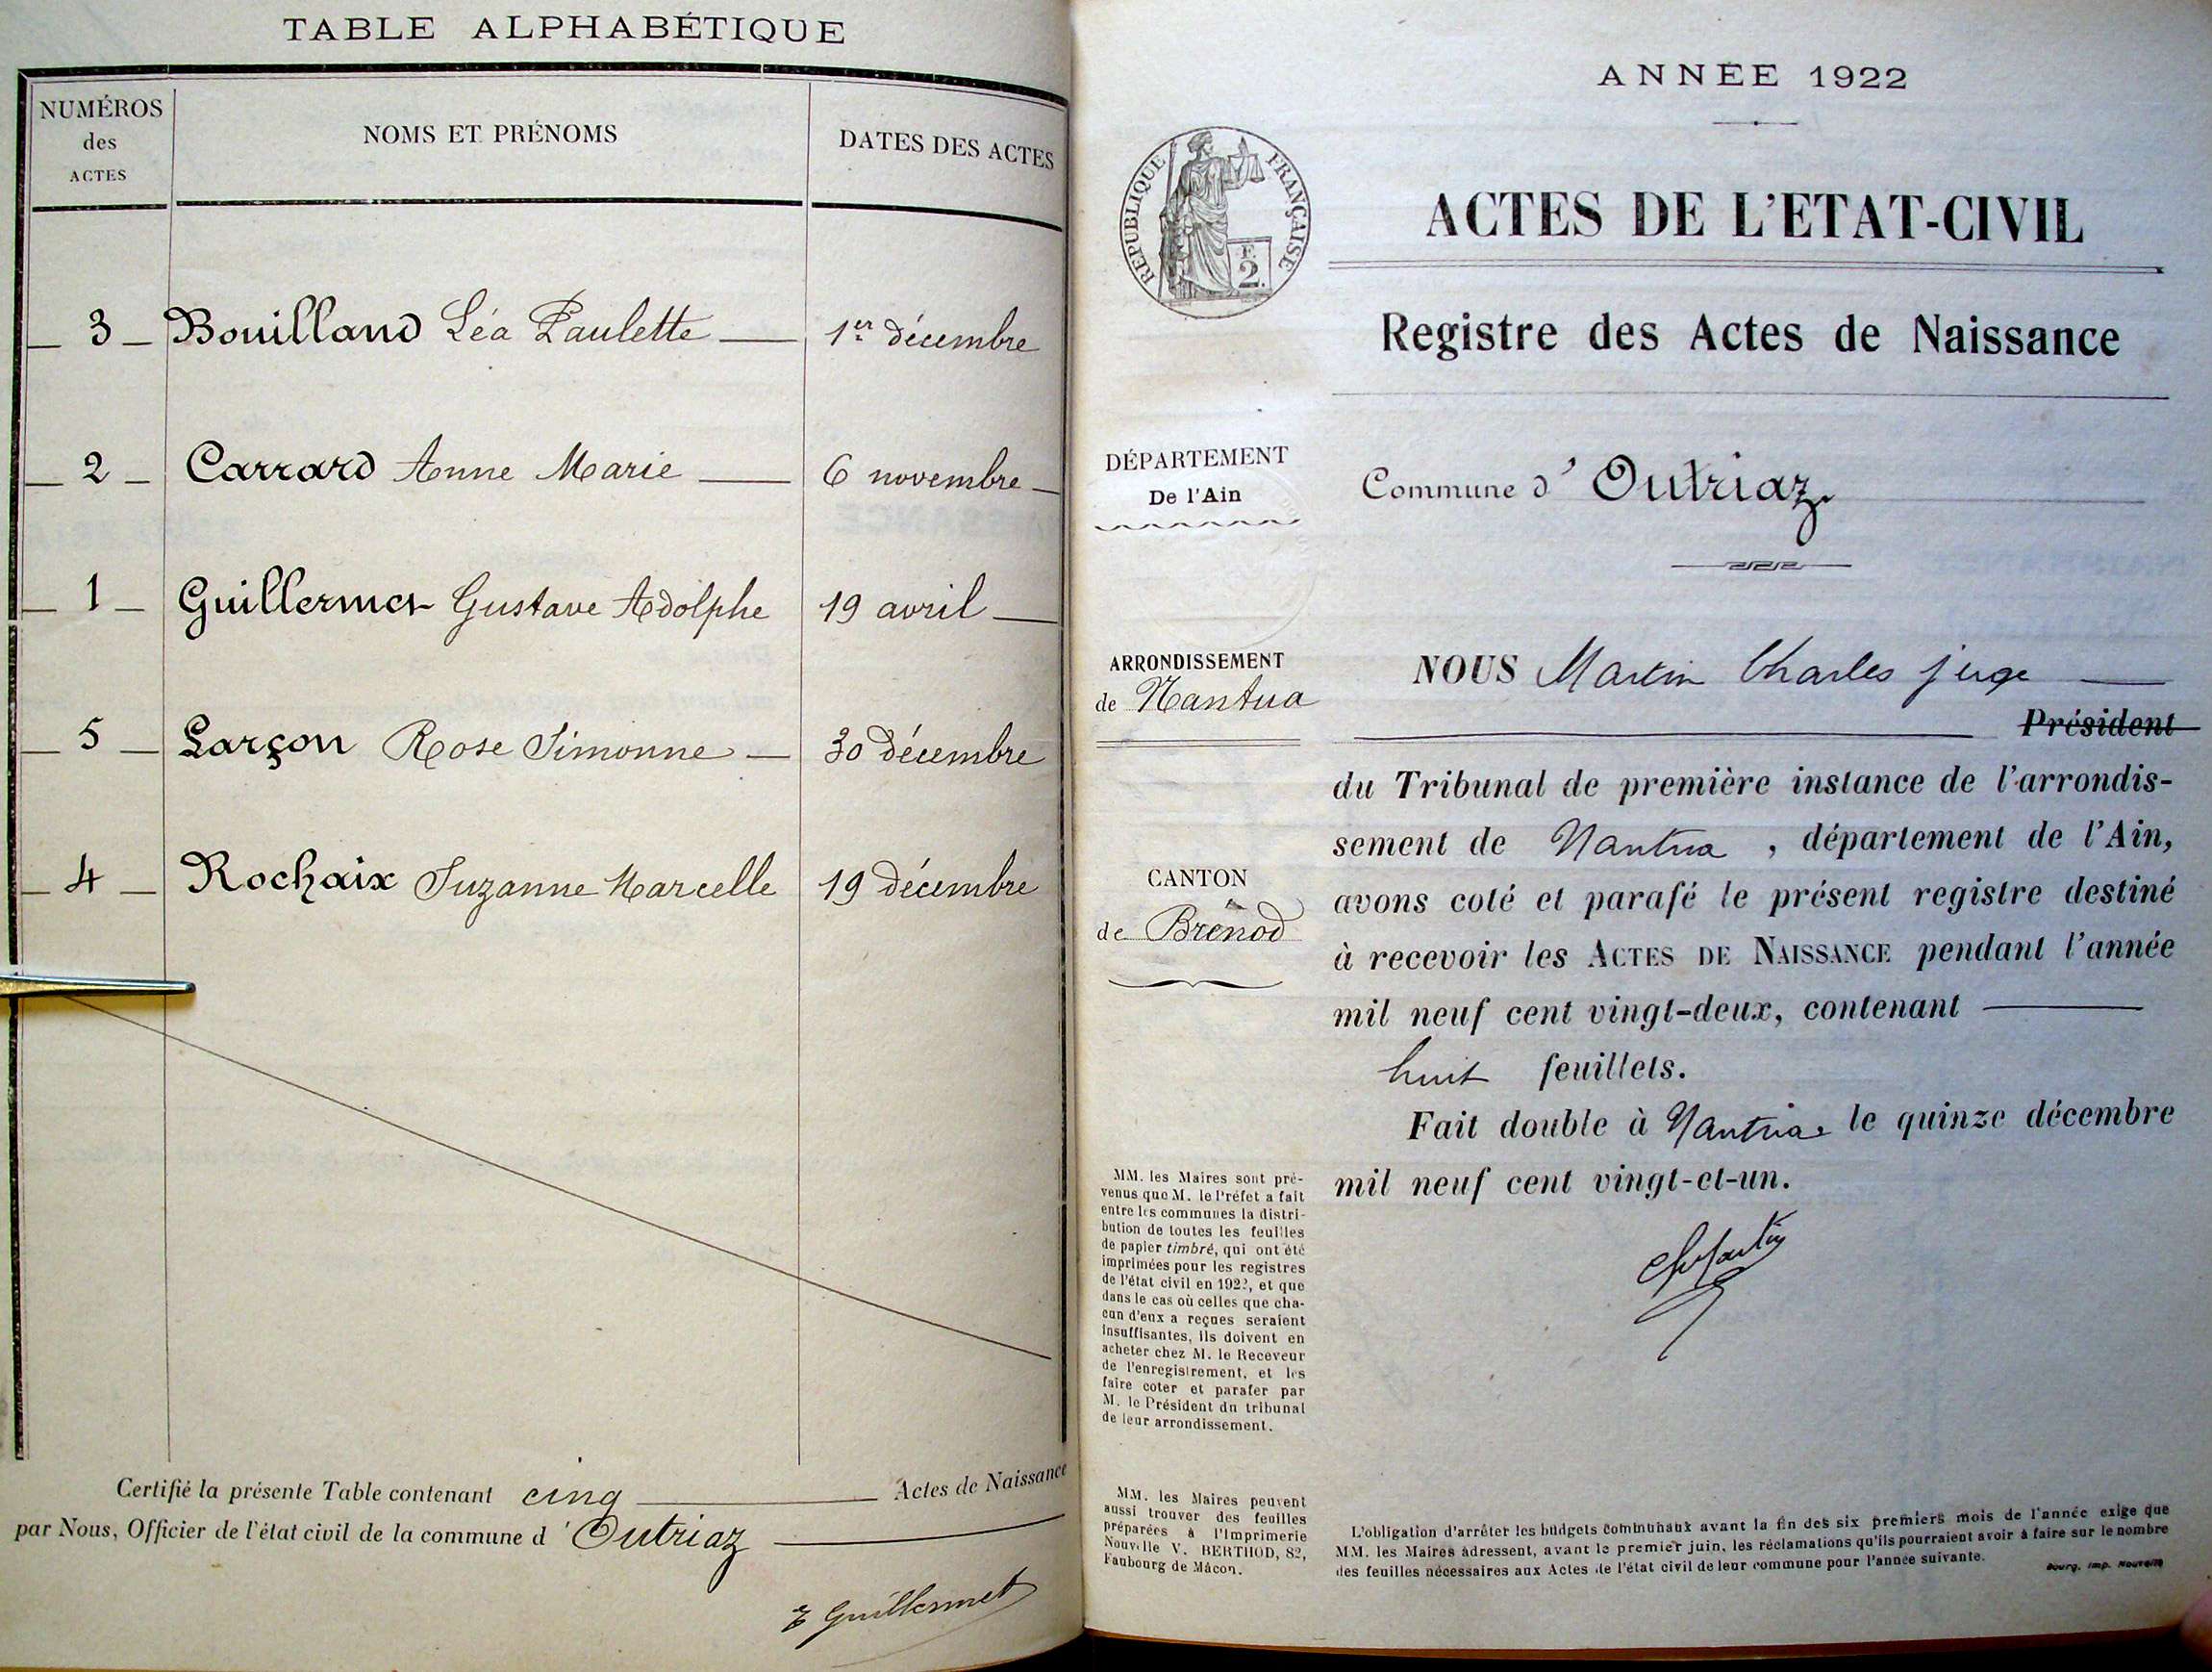 TABLE ALPHABÉTIQUE
NUMÉROS
des
ACTES
NOMS ET PRÉNOMS
DATES DES ACTES
3 Bouilland Léa Paulette 1er décembre
2 Carrard Anne Marie 6 novembre
1 Guillermet Gustave Adolphe 19 avril
5 Larçon Rose Simonne 30 décembre
4 Rochaix Suzanne Marcelle 19 décembre
Certifié la présente Table contenant cinq Actes de Naissance
par Nous, Officier de l'état civil de la commune d'Outriaz
E Guillermet
ANNÉE 1922
RÉPUBLIQUE FRANÇAISE
2
ACTES DE L'ETAT-CIVIL
Registre des Actes de Naissance
DÉPARTEMENT
De l'Ain
Commune d'Outriaz
ARRONDISSEMENT
de Nantua
CANTON
de Brénod
NOUS Martin Charles juge
Président
du Tribunal de première instance de l'arrondis-
sement de Nantua, département de l'Ain,
avons coté et parafé le présent registre destiné
à recevoir les ACTES DE NAISSANCE pendant l'année
mil neuf cent vingt-deux, contenant
huit feuillets.
Fait double à Nantua le quinze décembre
mil neuf cent vingt-et-un.
Ch Martin
MM. les Maires sont pré-
venus que M. le Préfet a fait
entre les communes la distri-
bution de toutes les feuilles
de papier timbré, qui ont été
imprimées pour les registres
de l'état civil en 1922, et que
dans le cas où celles que cha-
cun d'eux a reçues seraient
insuffisantes, ils doivent en
acheter chez M. le Receveur
de l'enregistrement, et les
faire coter et parafer par
M. le Président du tribunal
de leur arrondissement.
MM. les Maires peuvent
aussi trouver des feuilles
préparées à l'Imprimerie
Nouvelle V. BERTHOD, 82,
Faubourg de Mâcon.
L'obligation d'arrêter les budgets communaux avant la fin des six premiers mois de l'année exige que
MM. les Maires adressent, avant le premier juin, les réclamations qu'ils pourraient avoir à faire sur le nombre
des feuilles nécessaires aux Actes de l'état civil de leur commune pour l'année suivante.
Bourg, Imp. Nouvelle